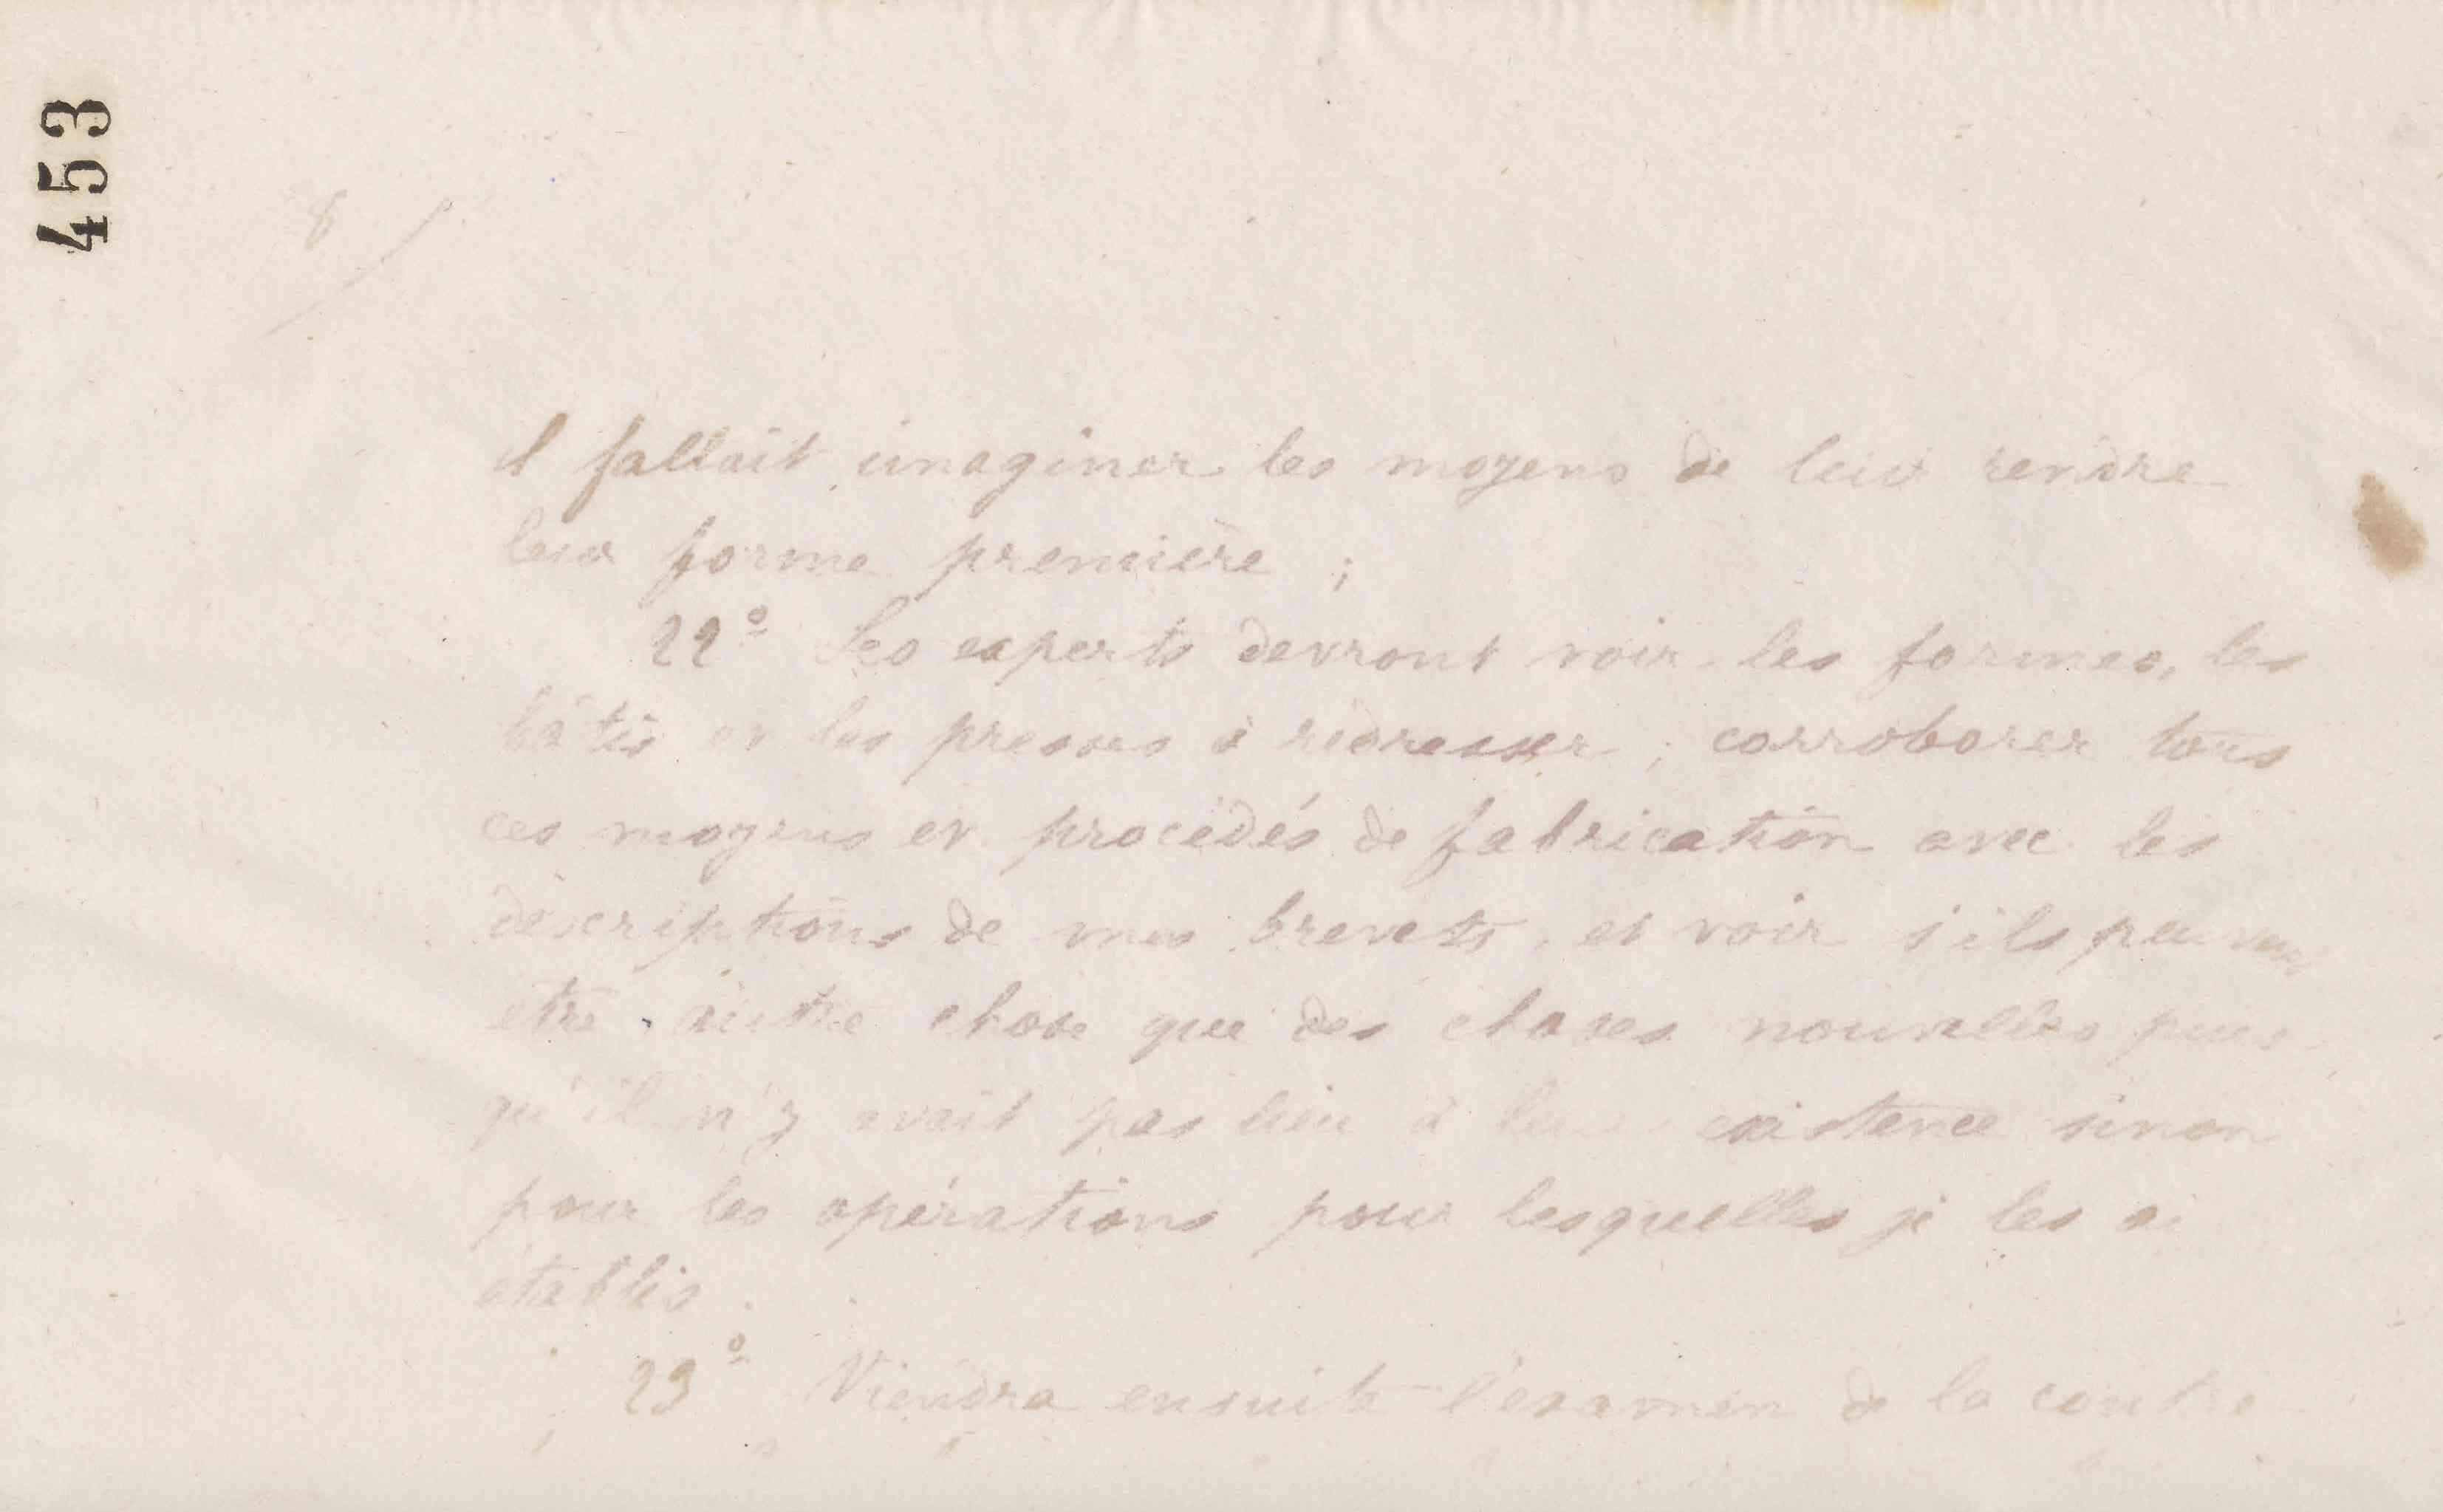 453
8
il fallait imaginer les moyens de leur rendre
leur forme première ;
22º Les experts devront voir les formes, les
bâtis et les presses à redresser ; corroborer tous
ces moyens et procédés de fabrication avec les
descriptions de mes brevets, et voir s'ils peuvent
être autre chose que des choses nouvelles puis
qu'il n'y avait pas lieu à leur existence sinon
pour les opérations pour lesquelles je les ai
établis.
23º Viendra ensuite l'examen de la contre